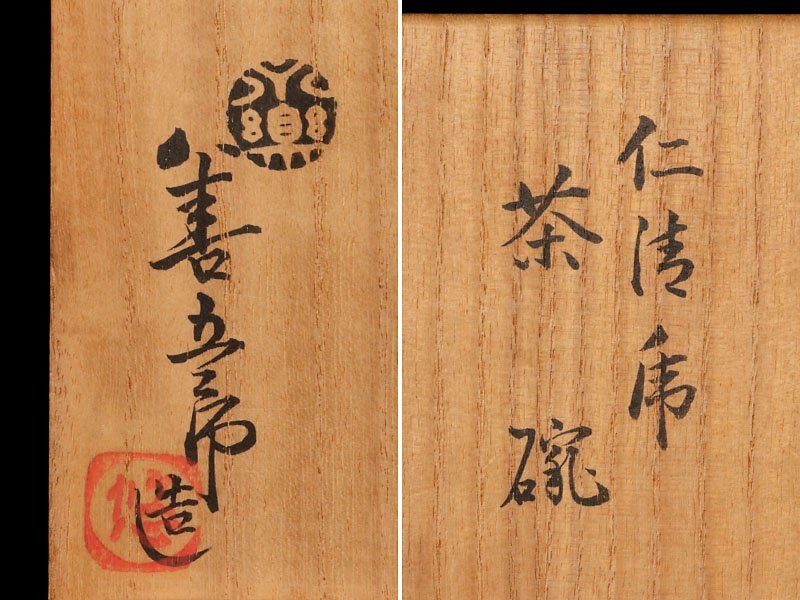 善五郎
造
仁清乕
茶碗